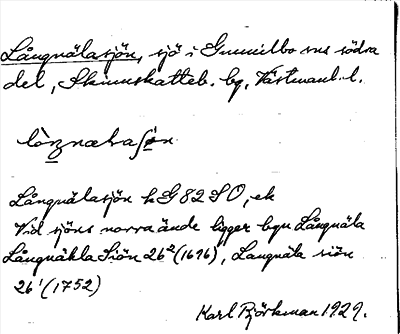 Långnälasjön, sjö i Gunnilbo sns södra
del, Skinnskatteb. bg, Västmanl. l.
Långnälasjön k G 82 SO, ek
Vid sjöns norra ände ligger byn Långnäla
Långnäkla Siön 26² (1696), Langnäla siön
26¹ (1752)
Karl Björkman 1929.